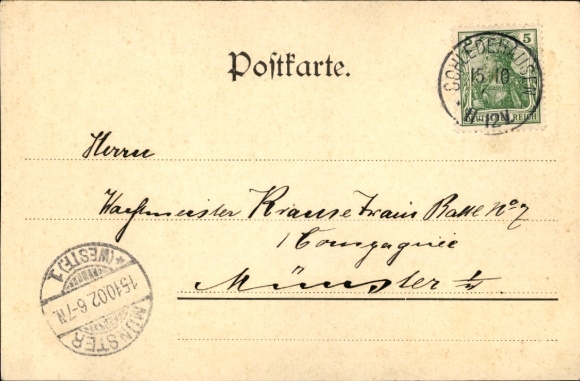 Postkarte.
5
SCHLEDEHAUSEN
15 10
11-12V
DEUTSCHES REICH
Herrn
Wachtmeister Krause Train Batl No 7
1 Compagnie
Münster i/W
*(WESTF.)1.
15.10.02.6-7N.
MÜNSTER